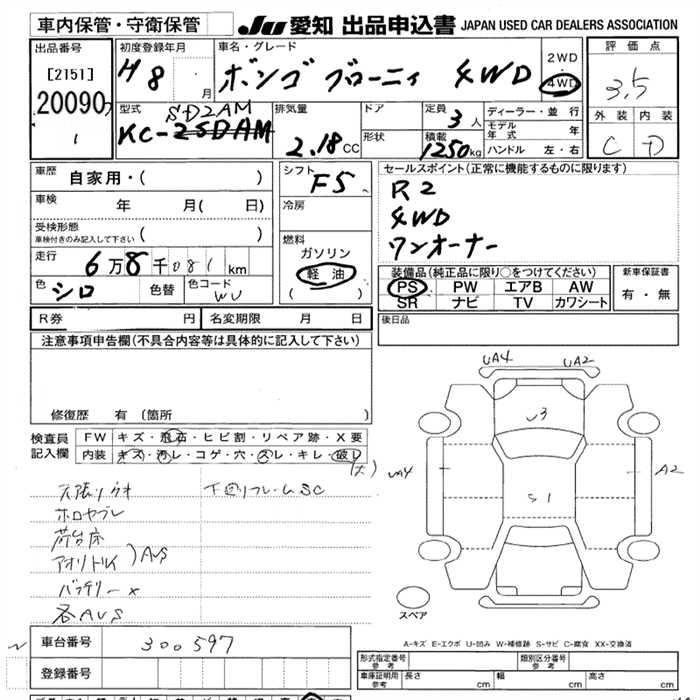 車内保管・守衛保管
JU 愛知 出品申込書 JAPAN USED CAR DEALERS ASSOCIATION
出品番号
[2151]
20090
1
初度登録年月
H8 ・ 月
車名・グレード
ボンゴ ブローニィ 4WD
2WD
4WD
評価点
3.5
外装 内装
C D
型式
SD2AM
KC-2SDAM
排気量
2.18CC
ドア
形状
定員
3人
積載
1250kg
ディーラー・並行
モデル年式 年
ハンドル 左・右
車歴
自家用・( )
車検
年 月( 日)
受検形態
車検付きのみ記入して下さい ( )
走行
6万8千081km
色
シロ
色替
色コード
WU
シフト
F5
冷房
燃料
ガソリン
軽油
( )
セールスポイント(正常に機能するものに限ります)
R2
4WD
ワンオーナー
装備品(純正品に限り○をつけてください)
PS PW エアB AW
SR ナビ TV カワシート
新車保証書
有・無
R券 円
名変期限 月 日
後日品
注意事項申告欄(不具合内容等は具体的に記入して下さい)
修復歴 有(箇所 )
検査員記入欄
FW キズ・飛石・ヒビ割・リペア跡・X要
内装 キズ・汚レ・コゲ・穴・スレ・キレ・破レ
(大)
ホロヤブレ
荷台床
アオリ
AUS
バッテリー×
各AUS
下回リフレームSC
UA4 UA2
U3
UA4
A2
S1
スペア
A-キズ E-エクボ U-凹み W-補修跡 S-サビ C-腐食 XX-交換済
車台番号
300597
登録番号
形式指定番号
参考
類別区分番号
参考
車庫証明用
参考
長さ cm
幅 cm
高さ cm